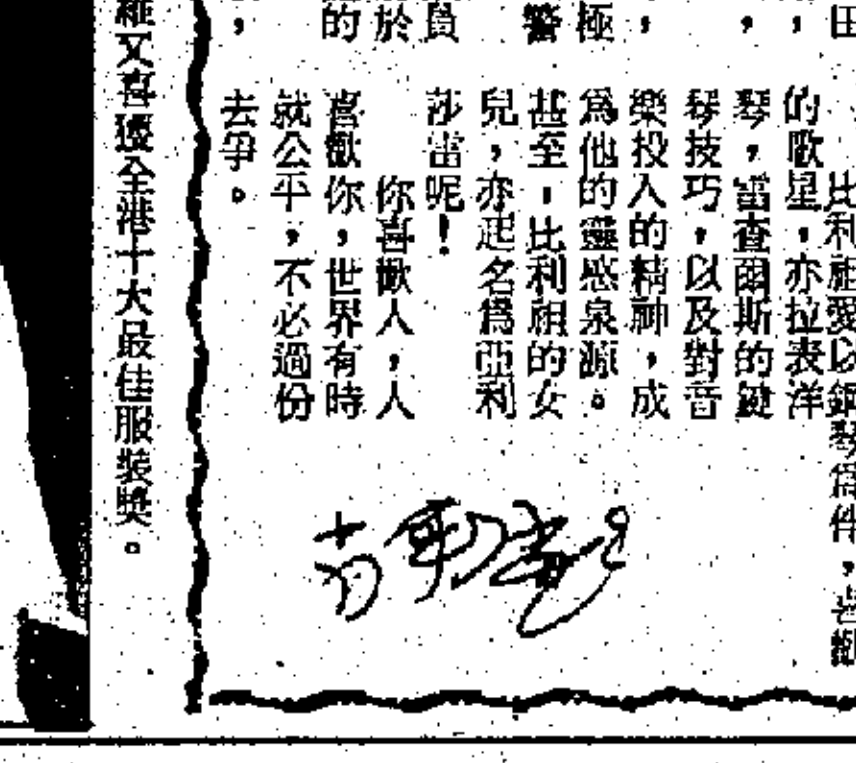 田
，
，
，
極
警
負
於
的
，
比利祖愛以鋼琴爲伴，喜歡
的歌星，亦拉表洋
琴，當查爾斯的鍵
琴技巧，以及對音
樂投入的精神，成
爲他的靈感泉源。
甚至，比利祖的女
兒，亦起名爲亞利
莎當呢！
你喜歡人，人
喜歡你，世界有時
就公平，不必過份
去爭。
羅又喜獲全港十大最佳服裝獎。